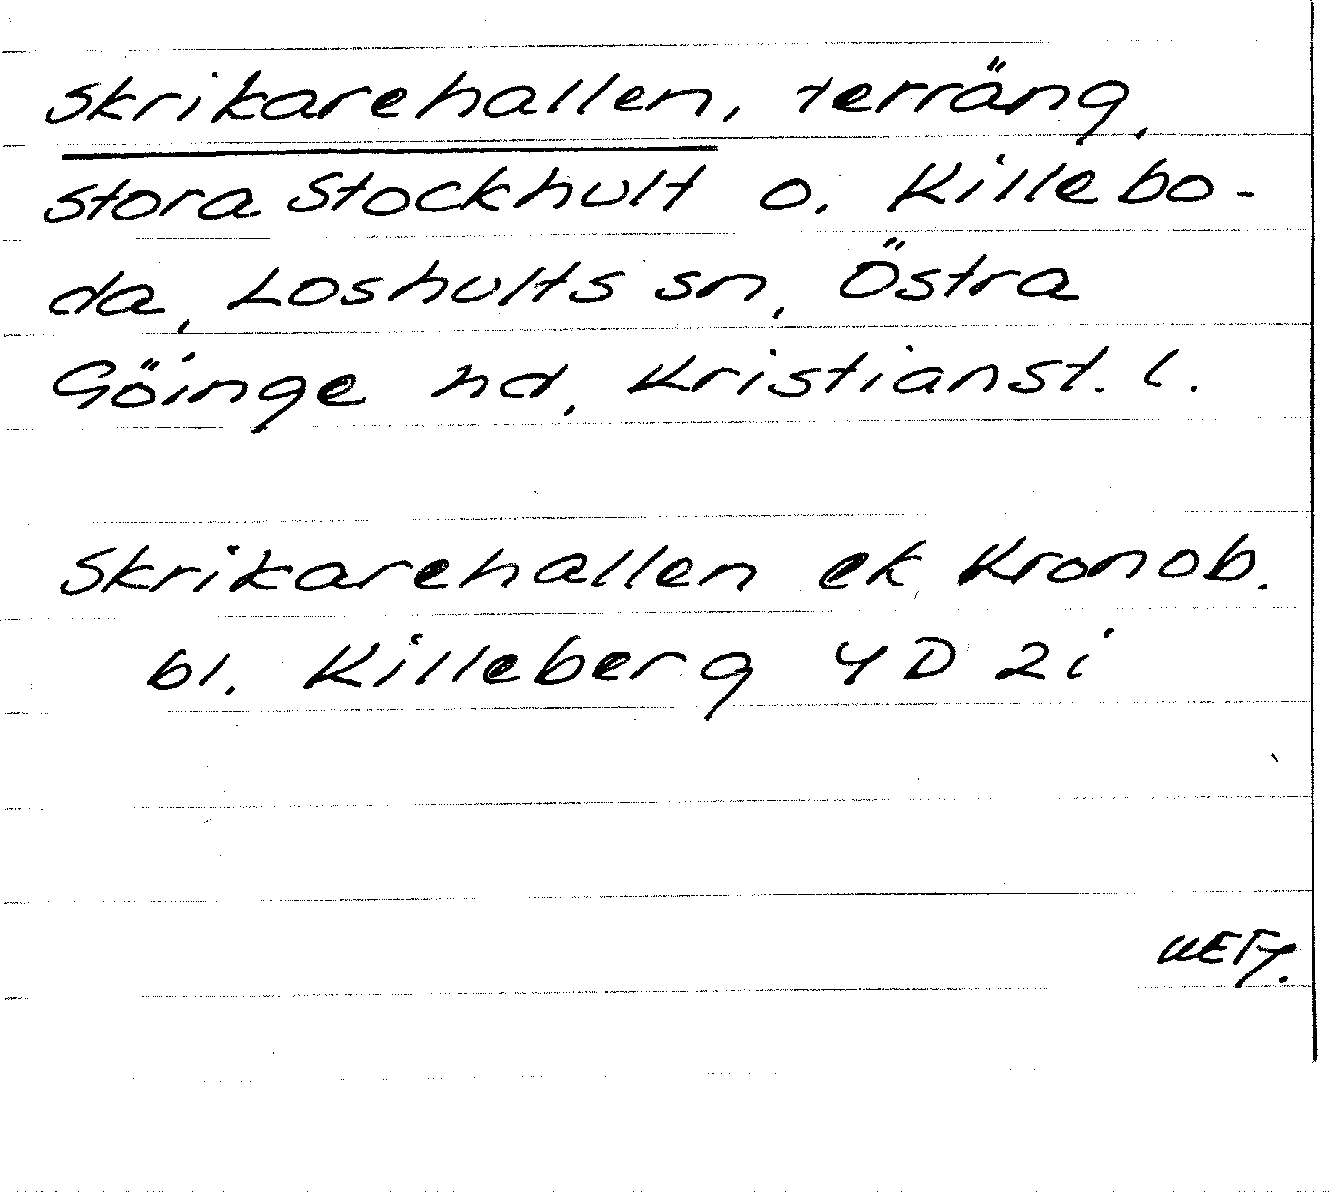 Skrikarehallen, terräng,
stora Stockhult o. Killebo-
da, Loshults sn, Östra
Göinge hd, Kristianst. l.
Skrikarehallen ek, Kronob.
bl. Killeberg 4D 2i